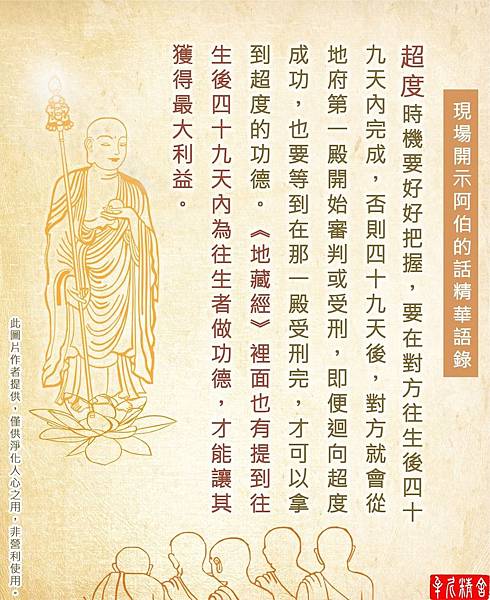 現場開示阿伯的話精華語錄
超度時機要好好把握，要在對方往生後四十
九天內完成，否則四十九天後，對方就會從
地府第一殿開始審判或受刑，即便迴向超度
成功，也要等到在那一殿受刑完，才可以拿
到超度的功德。《地藏經》裡面也有提到往
生後四十九天內為往生者做功德，才能讓其
獲得最大利益。
此圖片作者提供，僅供淨化人心之用，非營利使用。